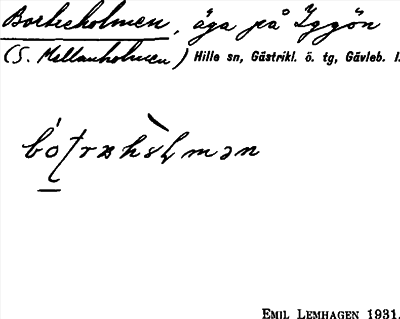 Bortreholmen, äga på Iggön
(S. Mellanholmen) Hille sn, Gästrikl. ö. tg, Gävleb. l.
EMIL LEMHAGEN 1931.